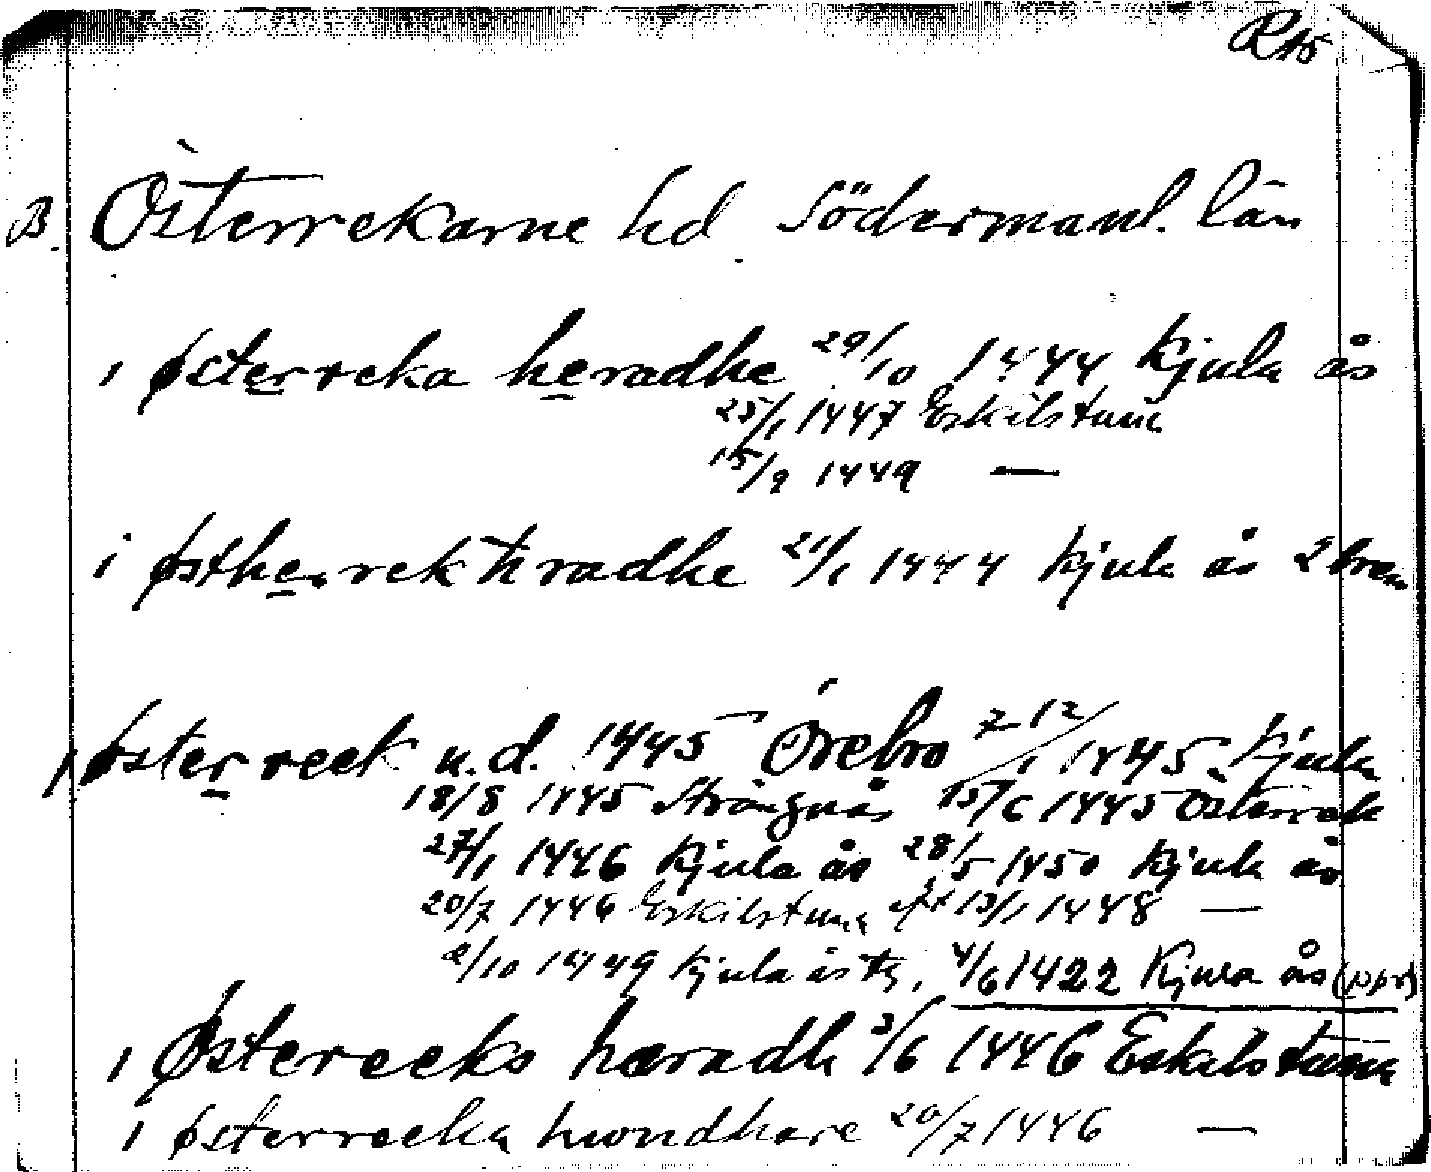 RAS
B. Österrekarne hd Södermanl. län
i østerreka heradhe 29/10 1444 Kjula ås
25/1 1447 Eskilstuna
15/9 1449 —
i østherrek hradhe 21/1 1444 Kjula ås 2 brev
i østerreek u.d. 1445 Örebro 7-12/1 1445 Kjula
18/8 1445 Strängnäs 15/6 1445 Österrek
27/1 1446 Kjula ås 28/5 1450 Kjula ås
20/7 1446 Eskilstuna 13/1 1448 —
2/10 1449 Kjula ås, 4/6 1422 Kjula ås (ppr)
i Østereeks hæradh 3/6 1446 Eskilstuna
i østerrecka hwndhare 20/7 1446 —